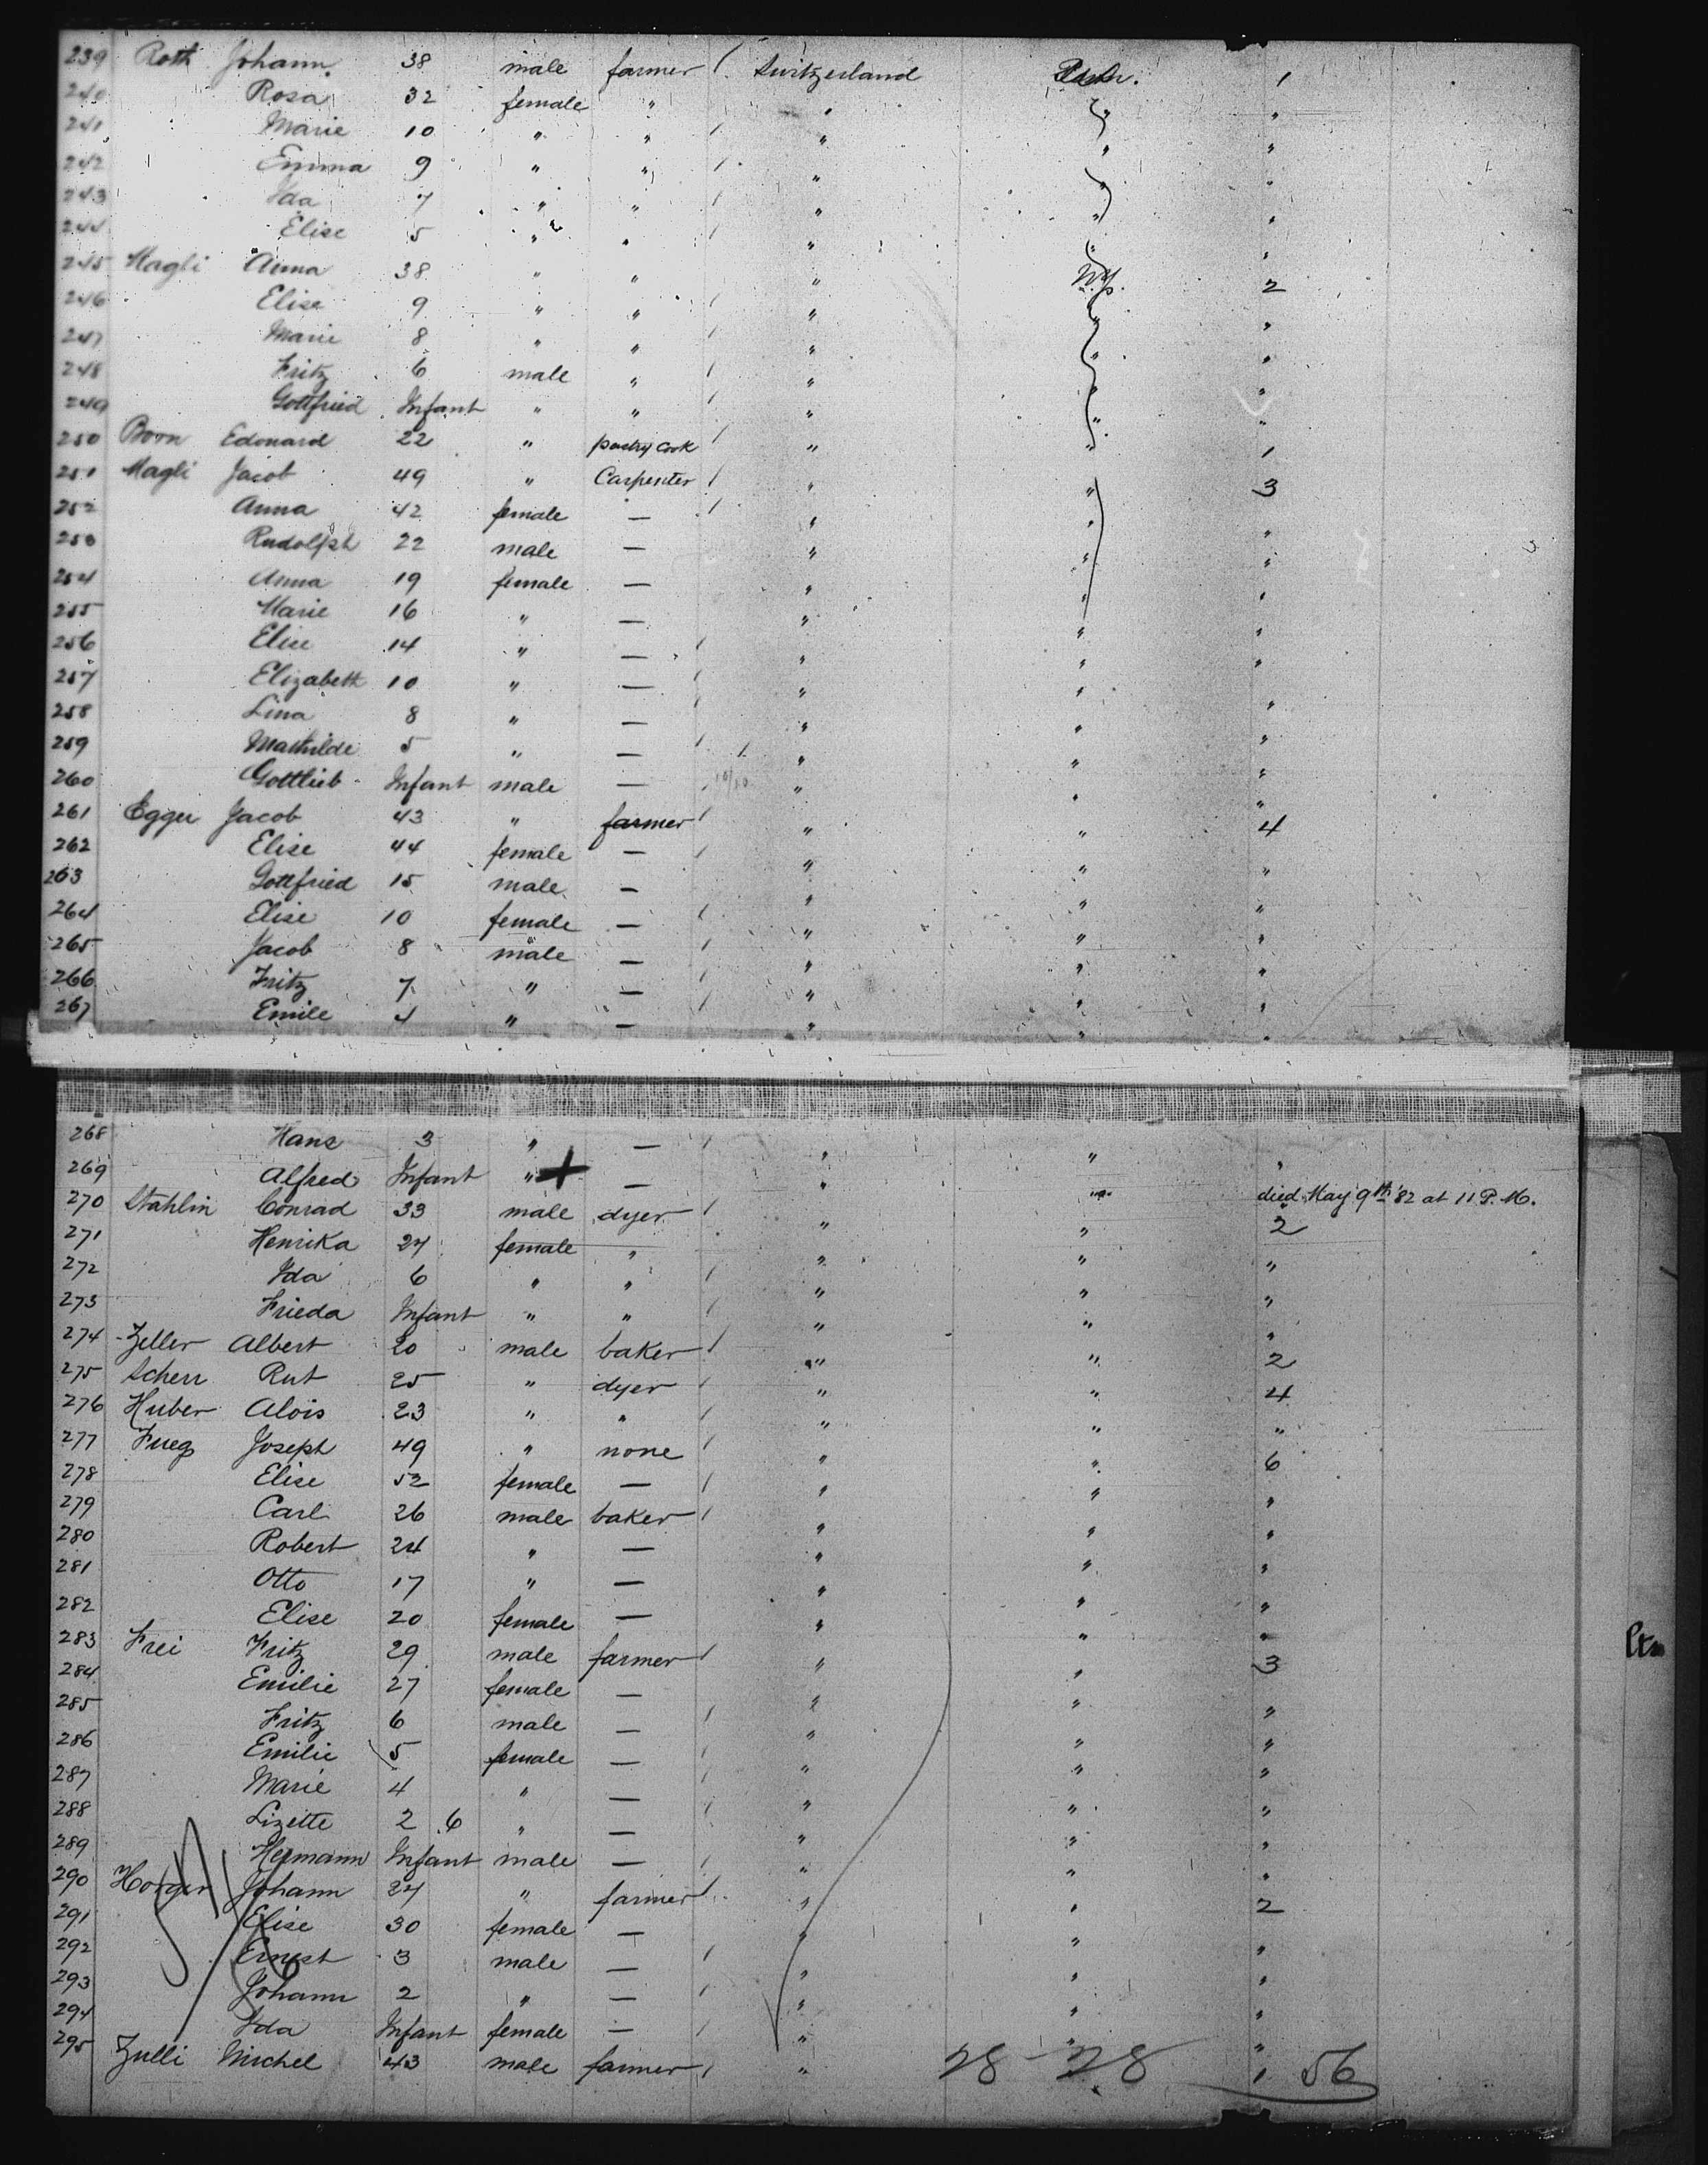 239 Roth Johann 38 male farmer / Switzerland 1
240 Rosa 32 female " " "
241 Marie 10 " " / " " "
242 Emma 9 " " / " " "
243 Ida 7 " " / " " "
244 Elise 5 " " / " " "
245 Magli Anna 38 " " " N.Y. 2
246 Elise 9 " " / " " "
247 Marie 8 " " / " " "
248 Fritz 6 male " / " " "
249 Gottfried Infant " " / " " "
250 Born Edouard 22 " pastry cook / " " 1
251 Magli Jacob 49 " Carpenter / " " 3
252 Anna 42 female — / " " "
253 Rudolph 22 male — " " "
254 Anna 19 female — " " "
255 Marie 16 " — " " "
256 Elise 14 " — / " " "
257 Elizabeth 10 " — / " " "
258 Lina 8 " — / " " "
259 Mathilde 5 " — / " " "
260 Gottlieb Infant male — " " "
261 Egger Jacob 43 " farmer / " " 4
262 Elise 44 female — / " " "
263 Gottfried 15 male — " " "
264 Elise 10 female — / " " "
265 Jacob 8 male — / " " "
266 Fritz 7 " — / " " "
267 Emile 4 " — / " " "
268 Hans 3 " — / " " "
269 Alfred Infant " — " " died May 9th '82 at 11 P.M.
270 Stahlin Conrad 33 male dyer / " " 2
271 Henrika 27 female " " " "
272 Ida 6 " " / " " "
273 Frieda Infant " " / " " "
274 Zeller Albert 20 male baker / " " 2
275 Scherr Rut 25 " dyer / " " 4
276 Huber Alois 23 " " / " " "
277 Fueg Joseph 49 " none / " " 6
278 Elise 52 female — / " " "
279 Carl 26 male baker / " " "
280 Robert 24 " — " " "
281 Otto 17 " — " " "
282 Elise 20 female — " " "
283 Frei Fritz 29 male farmer / " " 3
284 Emilie 27 female — " " "
285 Fritz 6 male — / " " "
286 Emilie 5 female — / " " "
287 Marie 4 " — / " " "
288 Lizette 2 6 " — / " " "
289 Hermann Infant male — / " " "
290 Johann 27 " farmer / " " 2
291 Elise 30 female — " " "
292 Ernest 3 male — / " " "
293 Johann 2 " — / " " "
294 Ida Infant female — / " " "
295 Zulli Michel 43 male farmer / " " 1
28 28 56